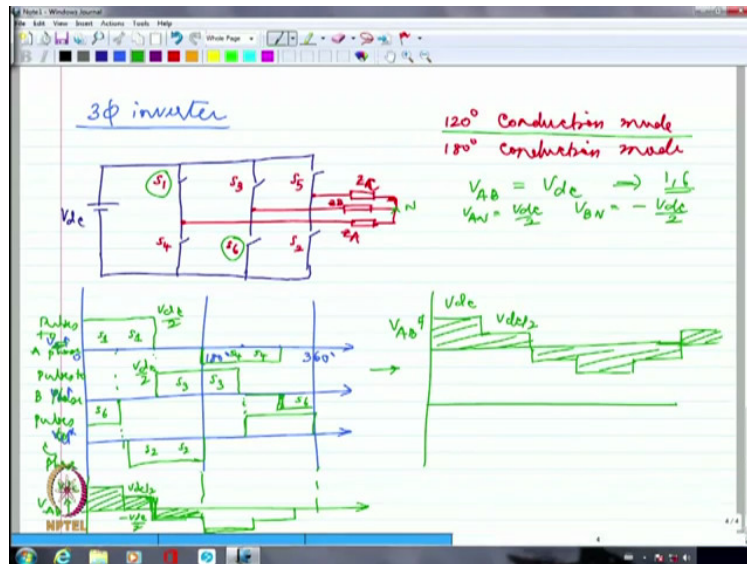 Note1 - Windows Journal
File Edit View Insert Actions Tools Help
Whole Page
3ϕ inverter
120° Conduction mode
180° Conduction mode
V_AB = Vdc → 1,6
V_AN = Vdc/2 V_BN = - Vdc/2
S1 S3 S5
Vdc
N
S4 S6 S2
ZA
Pulses
Vdc/2
S1 S1
A phase
180° S4 S4 360°
Pulses to
Vdc/2
S3 S3
B Phase
S6 S6
Pulses
S2 S2
Phase
Vdc/2
V_AB
-Vdc/2
Vdc
V_AB
Vdc/2
NPTEL
4
4/4